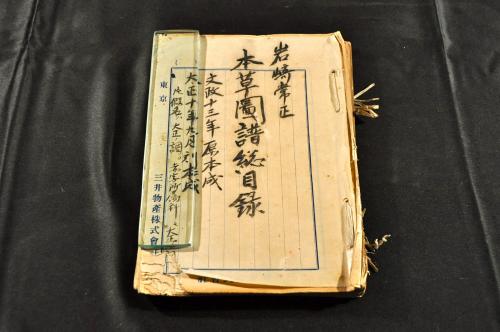 岩﨑常正
本草圖譜総目録
文政十三年原本成
大正十年九月刊本成
東京
三井物産株式會社